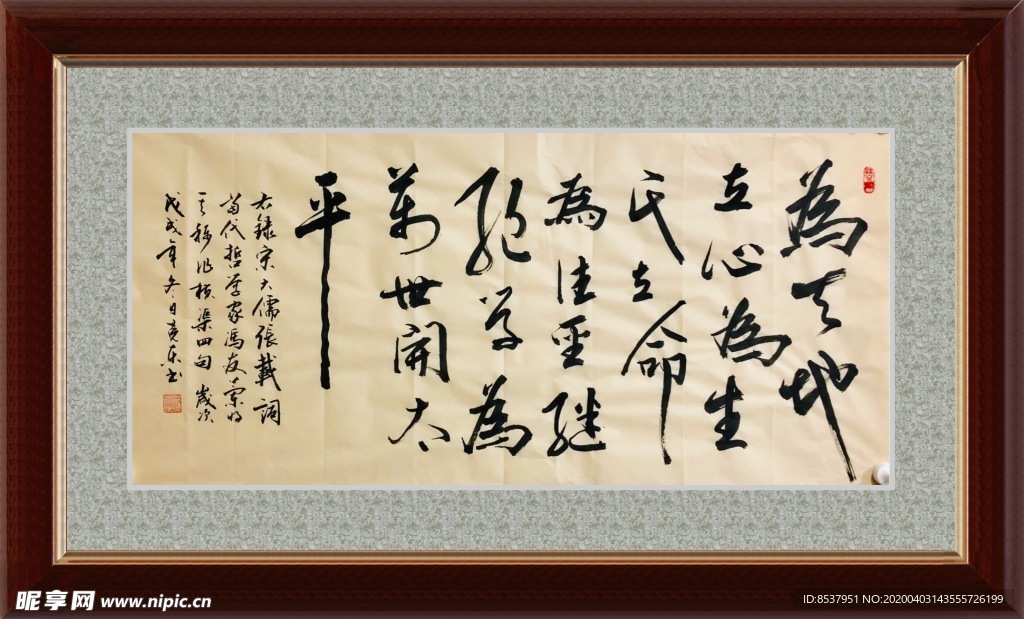 為天地
立心為生
民立命
為往聖継
絕學為
萬世開太
平
右録宋大儒張載詞
当代哲学家馮友蘭将
其称作横渠四句 歲次
戊戌年冬日克东书
昵享网 www.nipic.cn
ID:8537951 NO:20200403143555726199